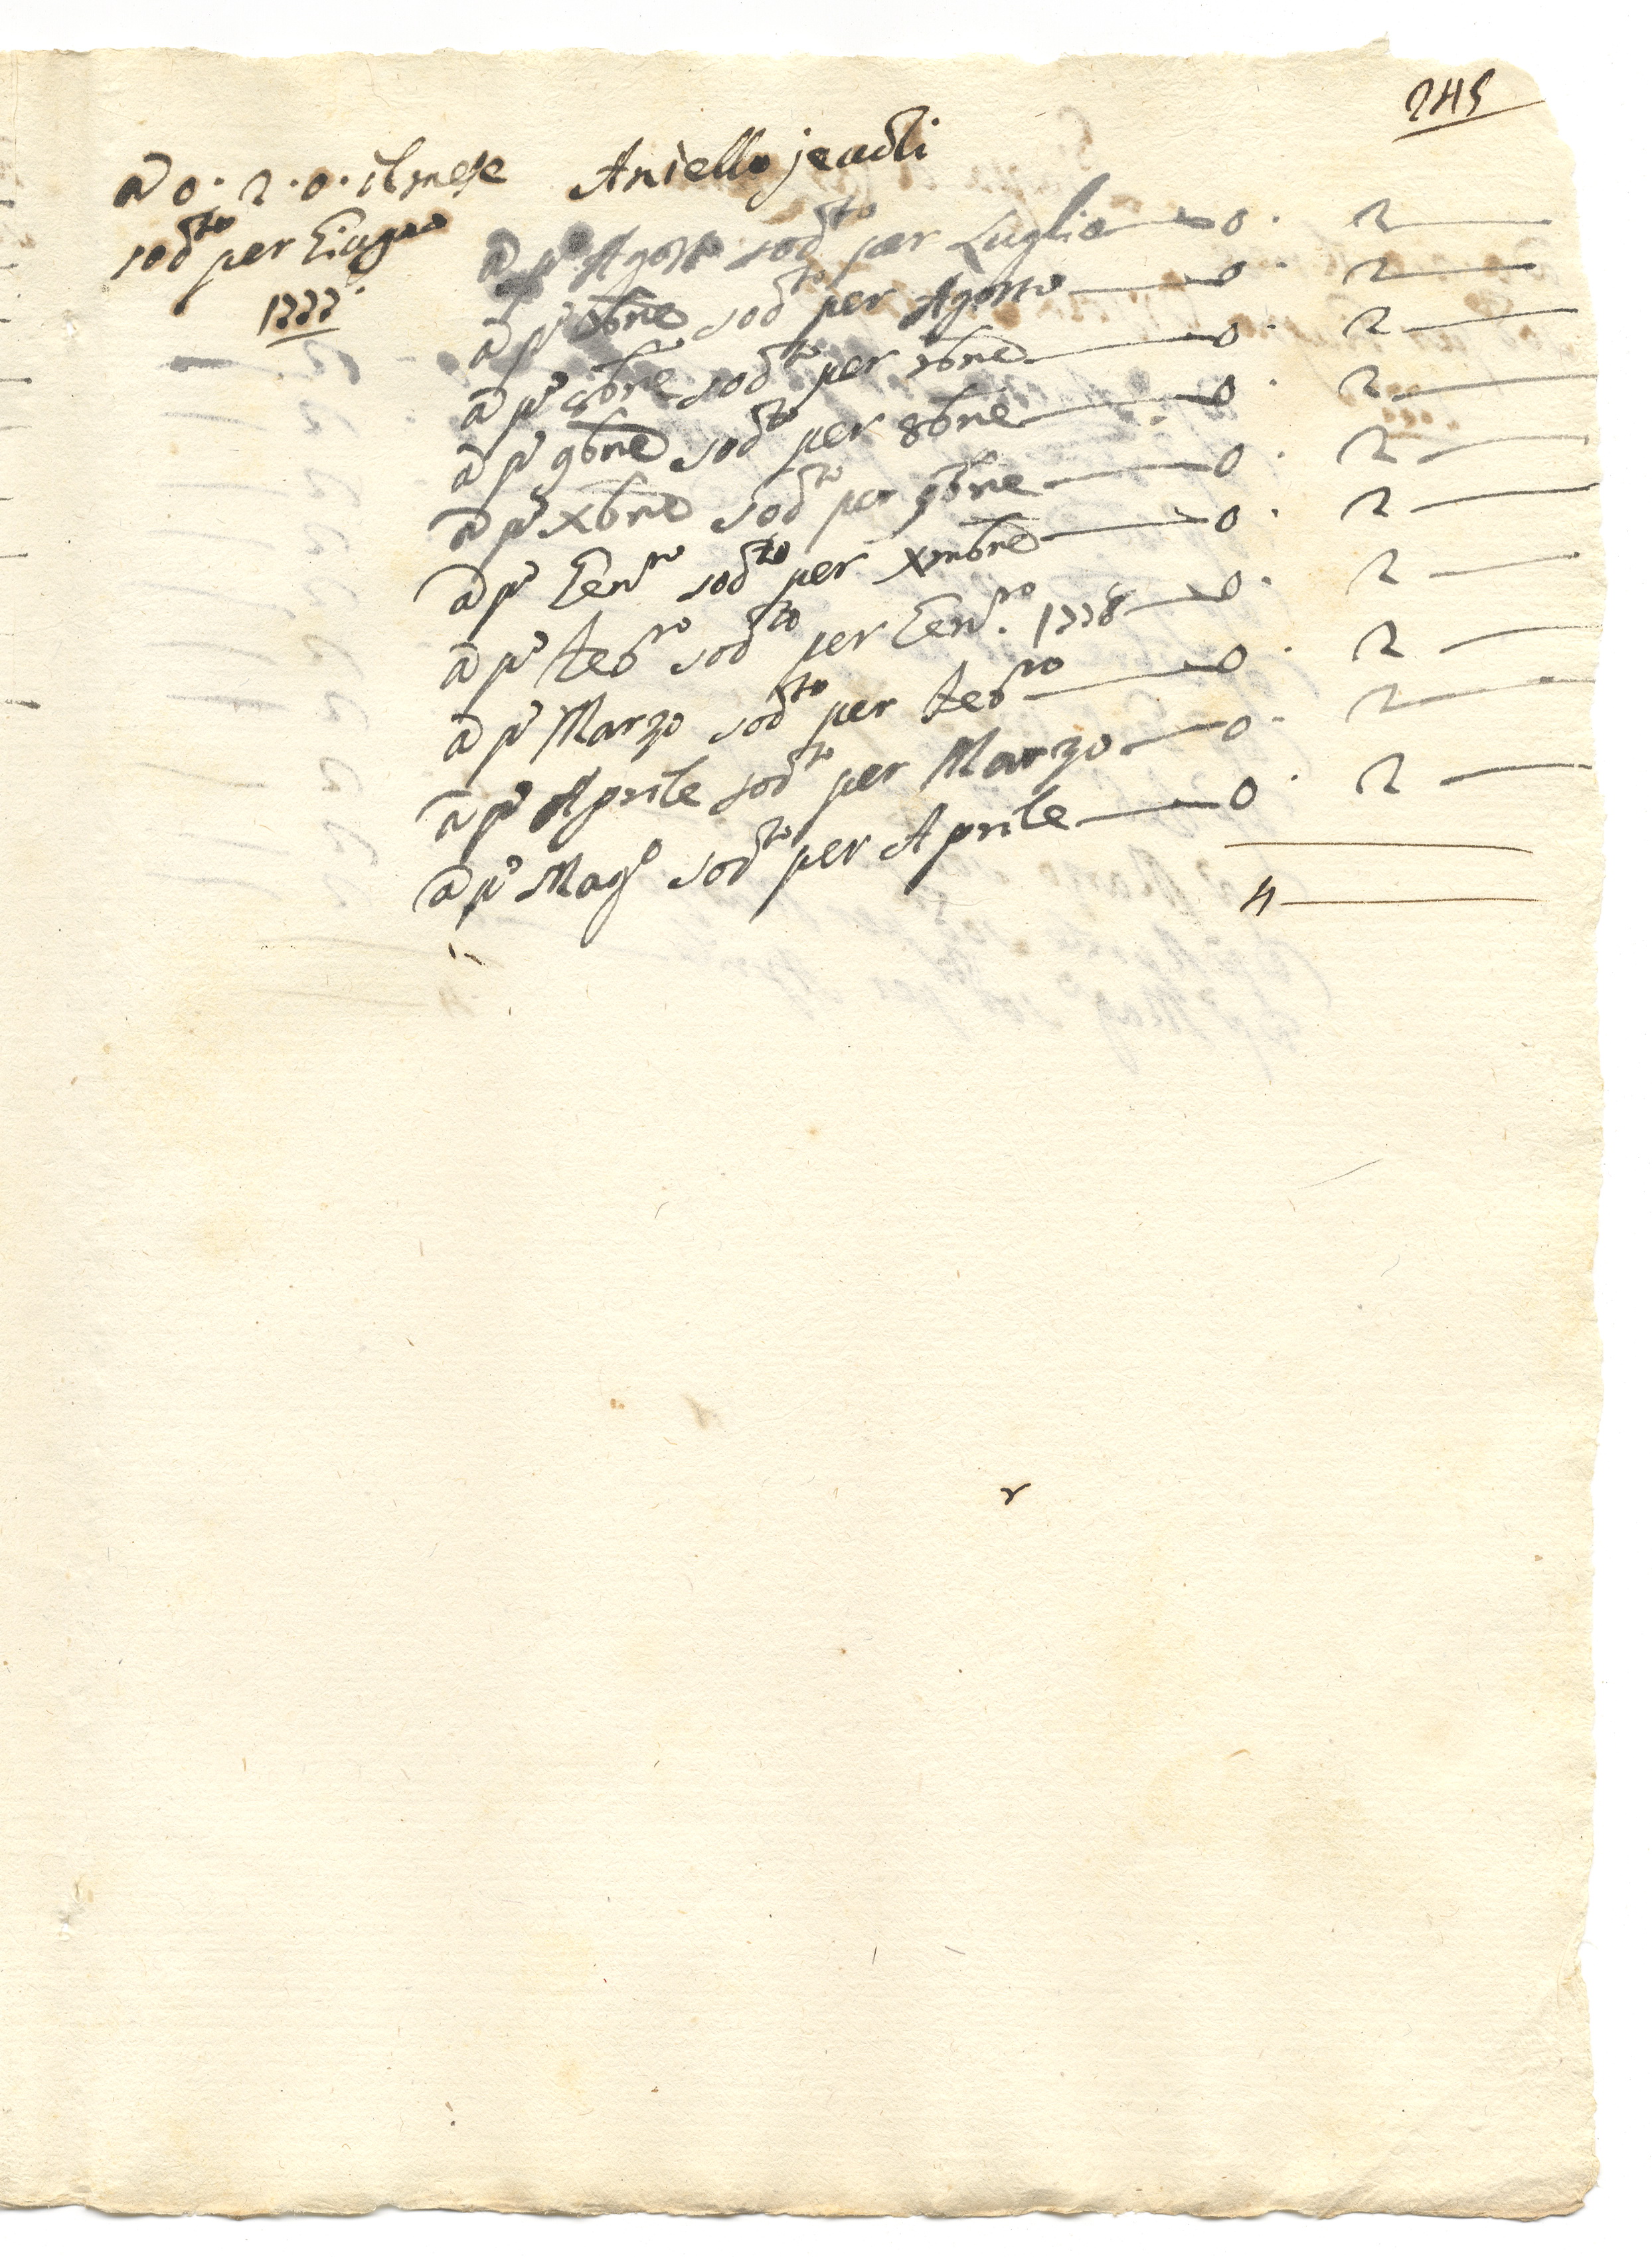 245
à 0. 2. 0. il mese
sodto per Giugno
1777.
Aniello
à po Agosto sodto per Luglio — 0. 2 —
à po 7bre sodto per Agosto — 0. 2 —
à po 8bre sodto per 7bre — 0. 2 —
à po 9bre sodto per 8bre — 0. 2 —
à po Xbre sodto per 9bre — 0. 2 —
à po Genro sodto per Xmbre — 0. 2 —
à po Febro sodto per Genro. 1778 — 0. 2 —
à po Marzo sodto per Febro — 0. 2 —
à po Aprile sodto per Marzo — 0. 2 —
à po Mago sodto per Aprile — 0. 2 —
4 —